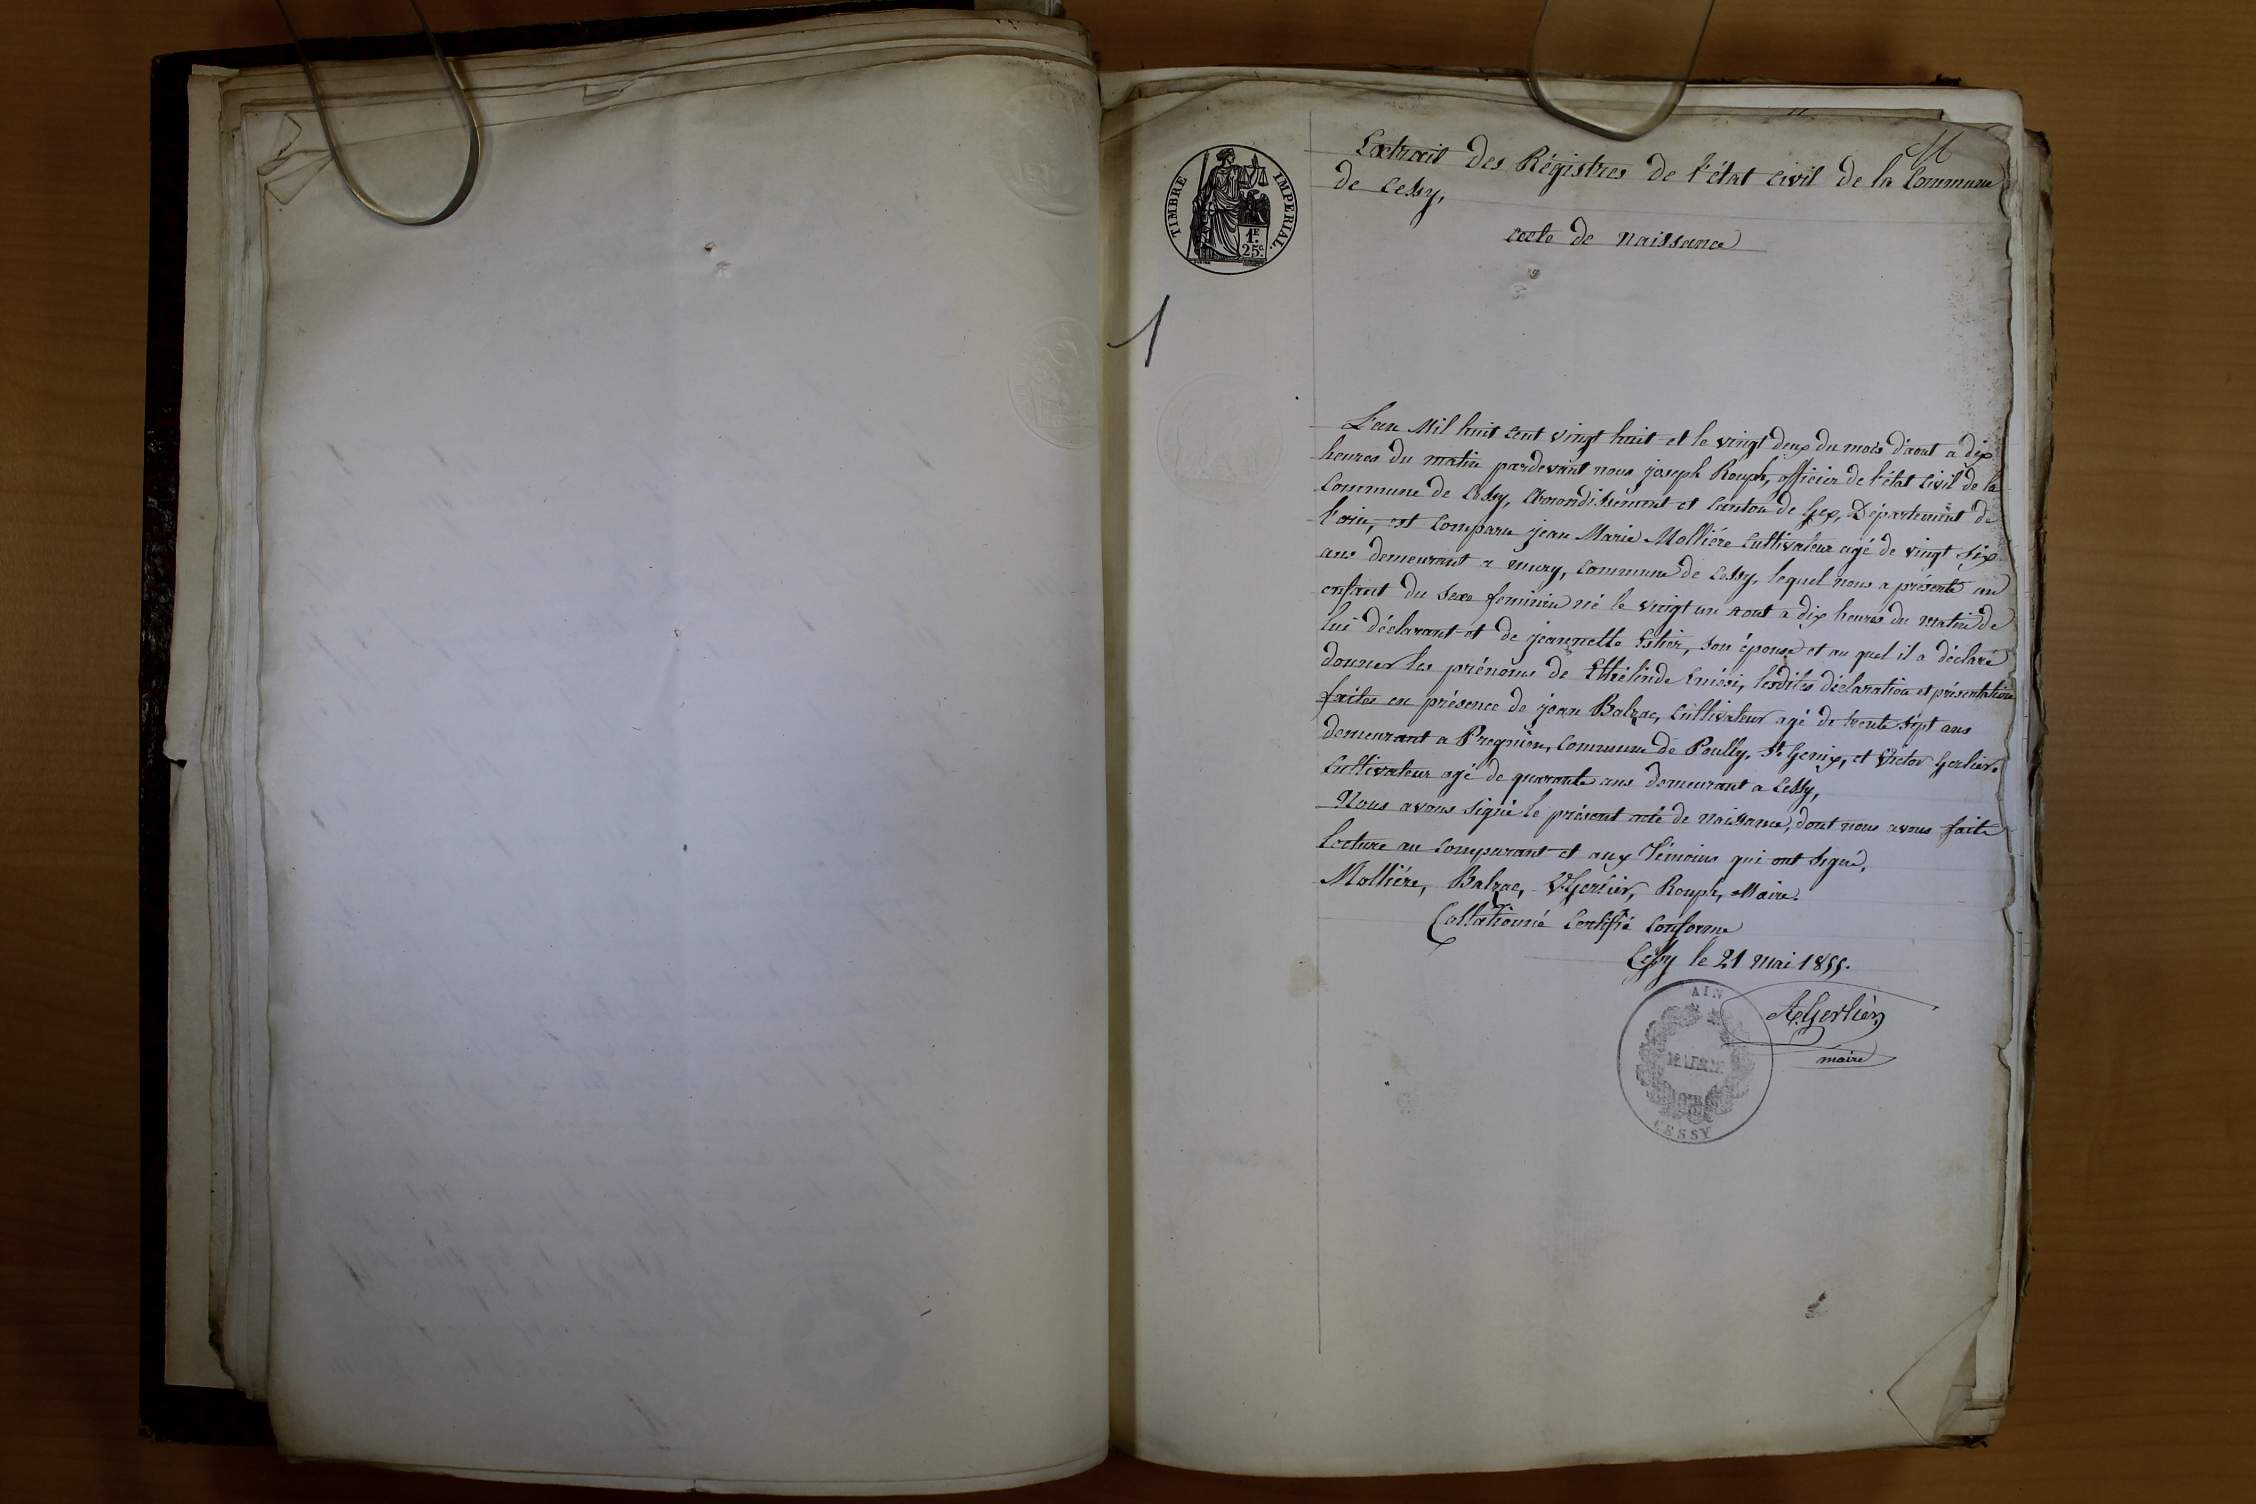 Extrait des Régistres de l'état civil de la Commune
de Cessy,
acte de Naissance
TIMBRE IMPERIAL.
1F.
25c.
1
L'an Mil huit Cent vingt huit et le vingt deux du mois d'aout a dix
heures du matin pardevant nous joseph Rouph, officier de l'état Civil de la
Commune de Cessy, Arrondissement et Canton de Gex, Département de
l'ain, est Comparu jean Marie Mollière Cultivateur agé de vingt six
ans demeurant a mury, Commune de Cessy, lequel nous a présenté un
enfant du sexe feminin né le vingt un aout a dix heures du matin de
lui déclarant et de jeannette Estier, son épouse et au quel il a déclaré
donner les prénoms de lesdites déclaration et présentation
faites en présence de jean Balzac, Cultivateur agé de trente sept ans
demeurant a Pregnien, Commune de Pouilly, St Genix, et Victor Gerlier.
Cultivateur agé de quarante ans demeurant a Cessy,
Nous avons signé le présent acte de Naissance, dont nous avons faite
lecture au Comparant et aux Témoins qui ont signé,
Mollière, Balzac, V. Gerlier, Rouph, Maire.
Collationné Certifié Conforme
Cessy le 21 mai 1855.
A. Gerlier
maire
AIN
MAIRIE
CESSY